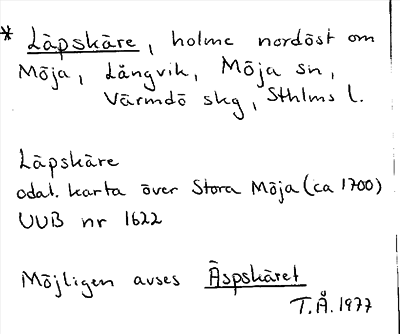 * Läpskäre, holme nordöst om
Möja, Långvik, Möja sn,
Värmdö skg, Sthlms l.
Läpskäre
odat. karta över Stora Möja (ca 1700)
UUB nr 1622
Möjligen avses Äspskäret
T.Å. 1977